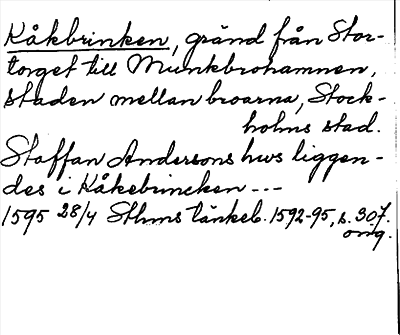 Kåkbrinken, gränd från Stor-
torget till Munkbrohamnen,
staden mellan broarna, Stock-
holms stad.
Staffan Andersons hws liggen-
des i Kåkebrincken ---
1595 28/4 Sthms tänkeb. 1592-95, s. 307.
orig.